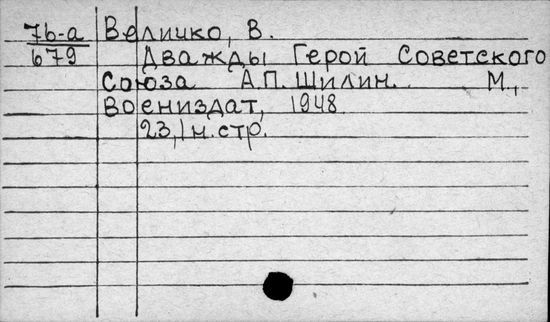 7б-а Величко, В.
679 Дважды Герой Советского
Союза А.П. Шилин. М.,
Воениздат, 1948.
23,1 н. стр.